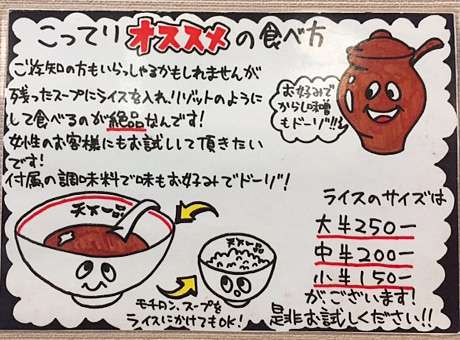 こってりオススメの食べ方
ご存知の方もいらっしゃるかもしれませんが
残ったスープにライスを入れ、リゾットのように
して食べるのが絶品なんです!
女性のお客様にもお試しして頂きたい
です!
付属の調味料で味もお好みでドーゾ!
お好みで
からし味噌
もドーゾ!!
天下一品
天下一品
モチロン、スープを
ライスにかけてもOK!
ライスのサイズは
大¥250-
中¥200-
小¥150-
がございます!
是非お試しください!!